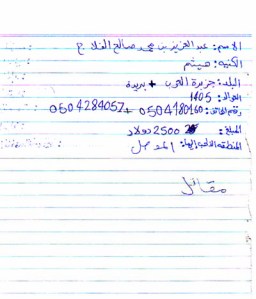 الاسم: عبد العزيز بن محمد صالح الفلاج
الكنيه: هيثم
البلد: جزيرة العرب + بريدة
1405
رقم الهاتف: 0504180160 + 0504284057
المبلغ: 2500 دولار
المنطقه الذاهب إليها: الموصل
مقاتل